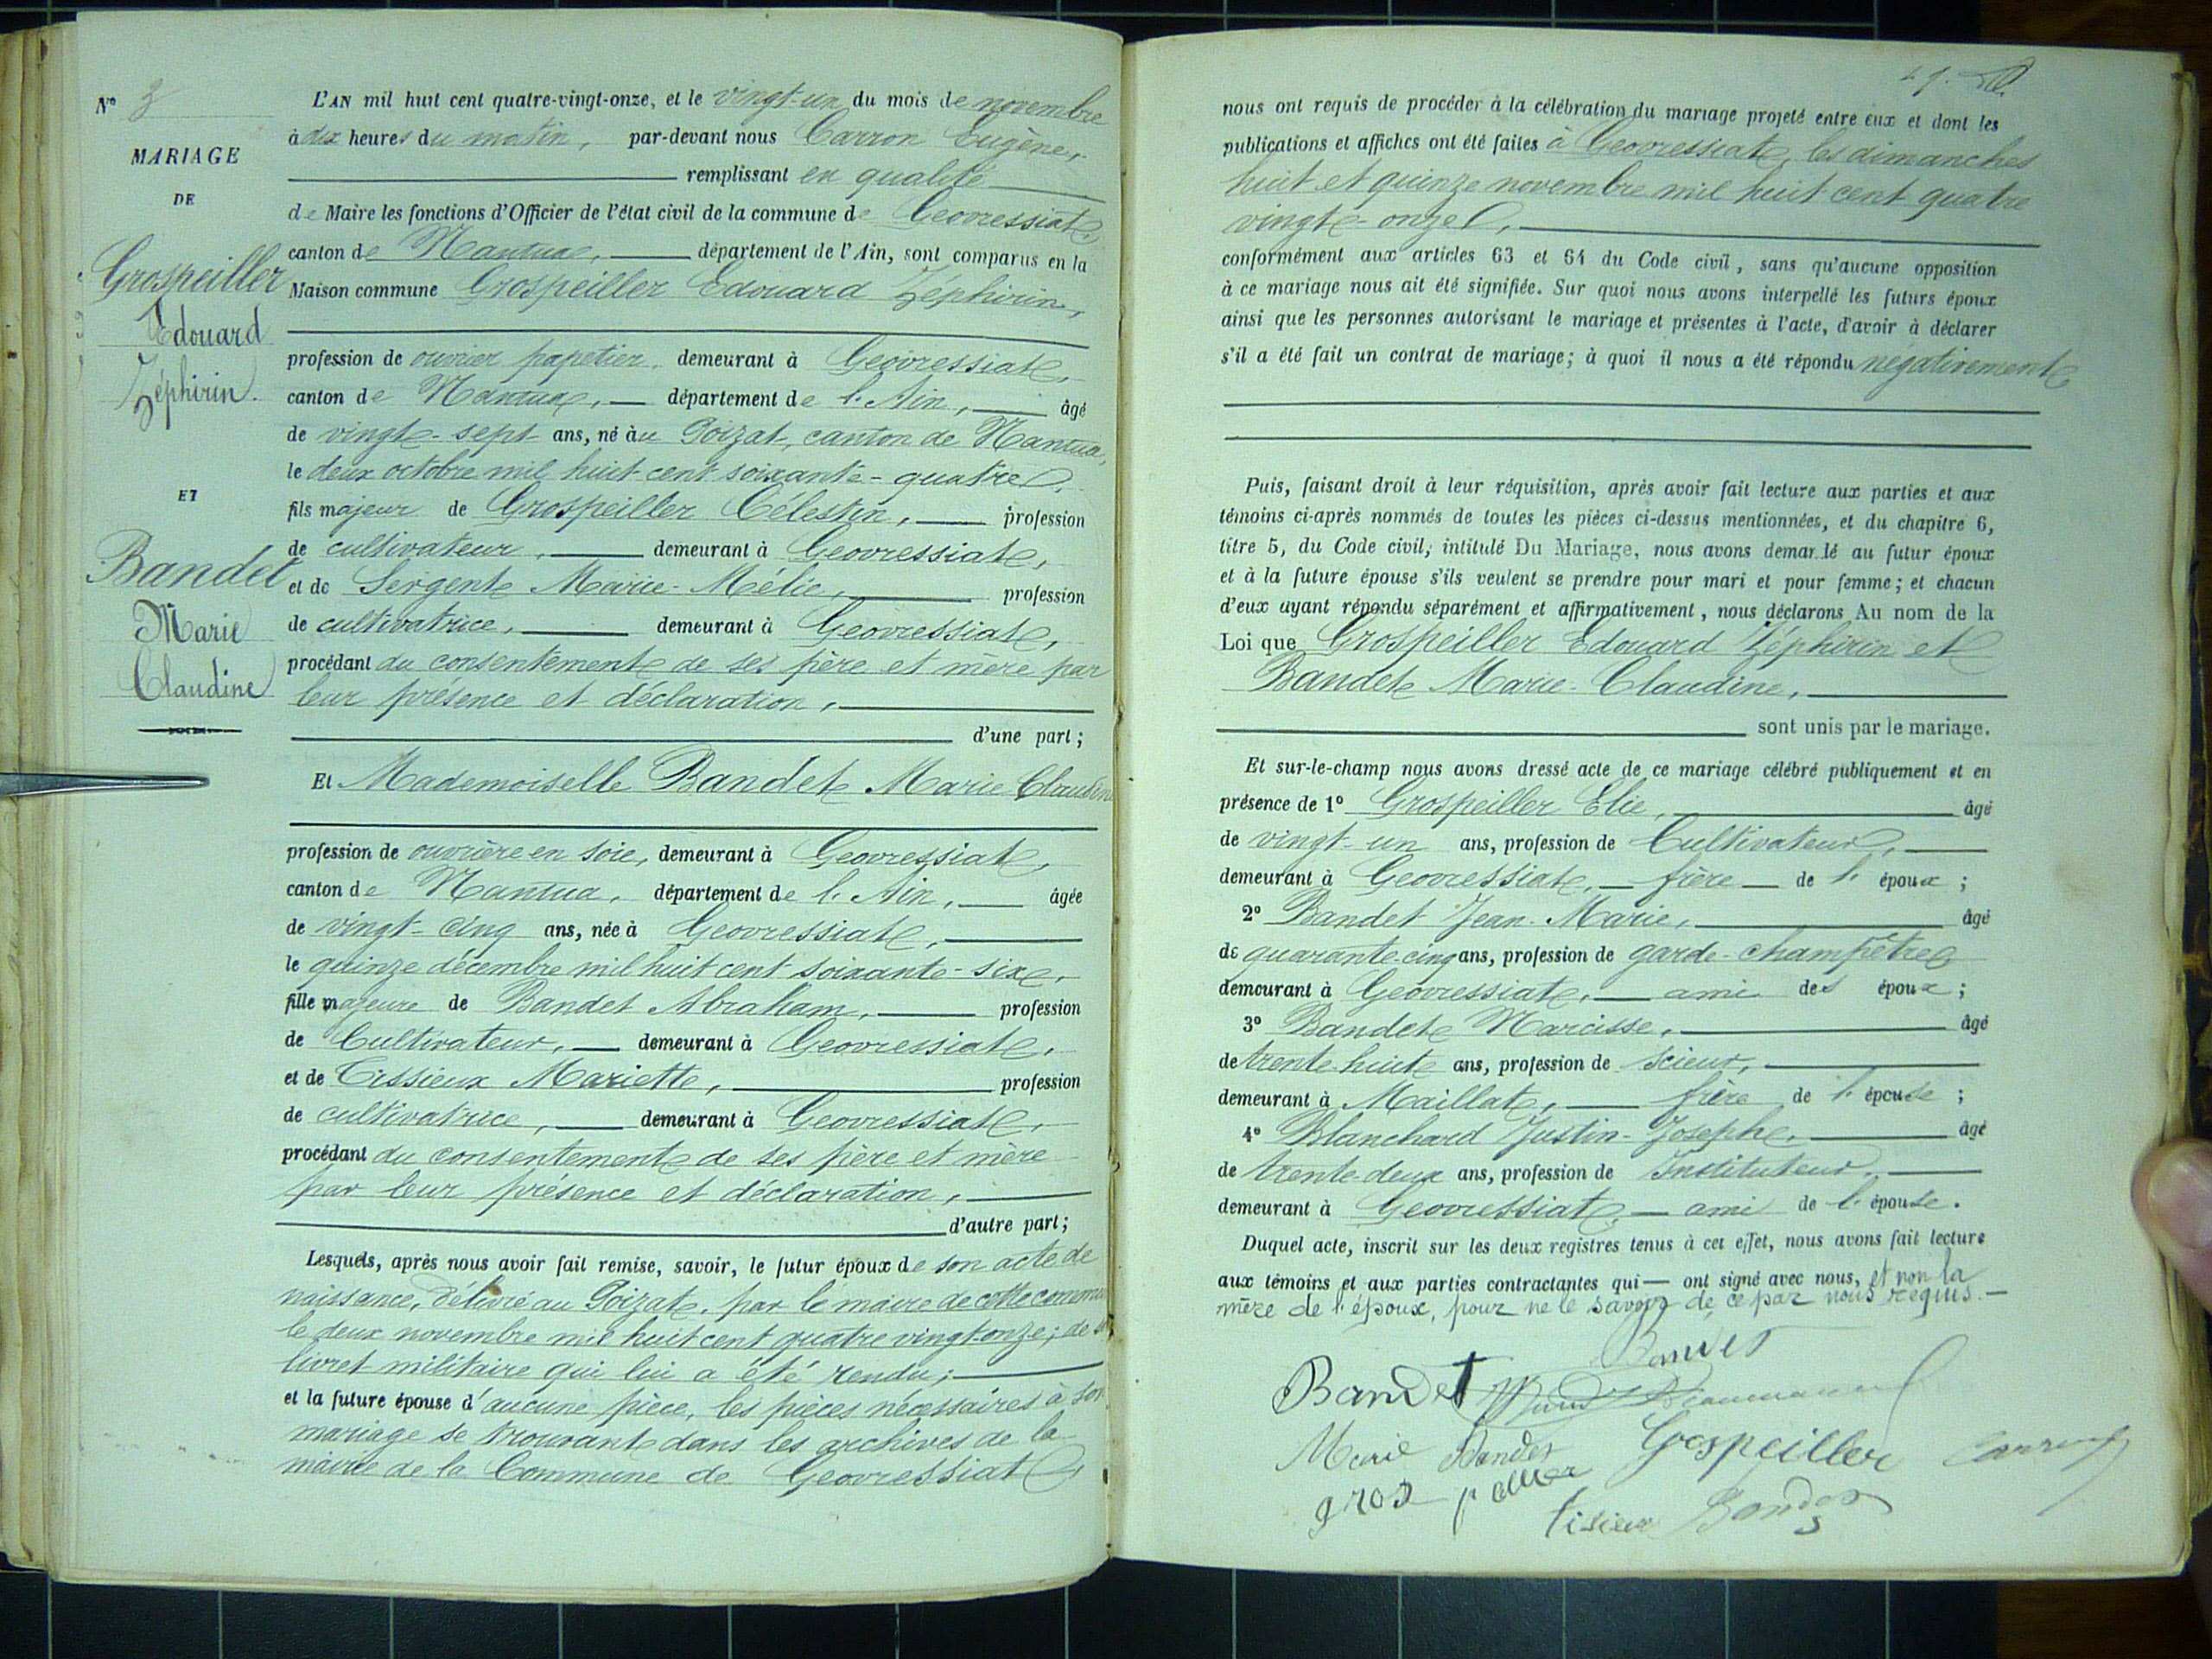 N° 3
MARIAGE
DE
Grospeiller
Edouard
Zéphirin.
ET
Bandet
Marie
Claudine
L'AN mil huit cent quatre-vingt-onze, et le vingt-un du mois de novembre
à dix heures du matin, par-devant nous Carron Eugène,
remplissant en qualité
de Maire les fonctions d'Officier de l'état civil de la commune de Geovressiat,
canton de Nantua, département de l'Ain, sont comparus en la
Maison commune Grospeiller Edouard Zéphirin,
profession de ouvrier papetier, demeurant à Geovressiat,
canton de Nantua, — département de l'Ain, — âgé
de vingt-sept ans, né au Poizat, canton de Nantua,
le deux octobre mil huit cent soixante-quatre,
fils majeur de Grospeiller Célestin, — profession
de cultivateur, — demeurant à Geovressiat,
et de Sergent Marie-Mélie, — profession
de cultivatrice, — demeurant à Geovressiat,
procédant du consentement de ses père et mère par
leur présence et déclaration,
d'une part;
Et Mademoiselle Bandet Marie Claudine
profession de ouvrière en soie, demeurant à Geovressiat,
canton de Nantua, département de l'Ain, — âgée
de vingt-cinq ans, née à Geovressiat,
le quinze décembre mil huit cent soixante-six,
fille majeure de Bandet Abraham, — profession
de Cultivateur, — demeurant à Geovressiat,
et de Tissieux Mariette, — profession
de cultivatrice, — demeurant à Geovressiat,
procédant du consentement de ses père et mère
par leur présence et déclaration,
d'autre part;
Lesquels, après nous avoir fait remise, savoir, le futur époux de son acte de
naissance, délivré au Poizat, par le maire de cette commune
le deux novembre mil huit cent quatre vingt-onze; de son
livret militaire qui lui a été rendu;
et la future épouse d'aucune pièce, les pièces nécessaires à son
mariage se trouvant dans les archives de la
mairie de la Commune de Geovressiat
nous ont requis de procéder à la célébration du mariage projeté entre eux et dont les
publications et affiches ont été faites à Geovressiat, les dimanches
huit et quinze novembre mil huit cent quatre
vingt-onze,
conformément aux articles 63 et 64 du Code civil, sans qu'aucune opposition
à ce mariage nous ait été signifiée. Sur quoi nous avons interpellé les futurs époux
ainsi que les personnes autorisant le mariage et présentes à l'acte, d'avoir à déclarer
s'il a été fait un contrat de mariage; à quoi il nous a été répondu négativement
Puis, faisant droit à leur réquisition, après avoir fait lecture aux parties et aux
témoins ci-après nommés de toutes les pièces ci-dessus mentionnées, et du chapitre 6,
titre 5, du Code civil, intitulé Du Mariage, nous avons demandé au futur époux
et à la future épouse s'ils veulent se prendre pour mari et pour femme; et chacun
d'eux ayant répondu séparément et affirmativement, nous déclarons Au nom de la
Loi que Grospeiller Edouard Zéphirin et
Bandet Marie-Claudine,
sont unis par le mariage.
Et sur-le-champ nous avons dressé acte de ce mariage célébré publiquement et en
présence de 1° Grospeiller Elie, âgé
de vingt-un ans, profession de Cultivateur,
demeurant à Geovressiat, — frère — de l'époux;
2° Bandet Jean-Marie, âgé
de quarante-cinq ans, profession de garde-champêtre
demeurant à Geovressiat, — ami des époux;
3° Bandet Narcisse, âgé
de trente-huit ans, profession de scieur,
demeurant à Maillat, — frère de l'épouse;
4° Blanchard Justin-Joseph, âgé
de trente-deux ans, profession de Instituteur,
demeurant à Geovressiat, — ami de l'épouse.
Duquel acte, inscrit sur les deux registres tenus à cet effet, nous avons fait lecture
aux témoins et aux parties contractantes qui — ont signé avec nous, et non la
mère de l'époux, pour ne le savoir de ce par nous requis.
Bandet
Bandet
Marie Bandet Grospeiller Carron
gros peller
tisieux Bandet